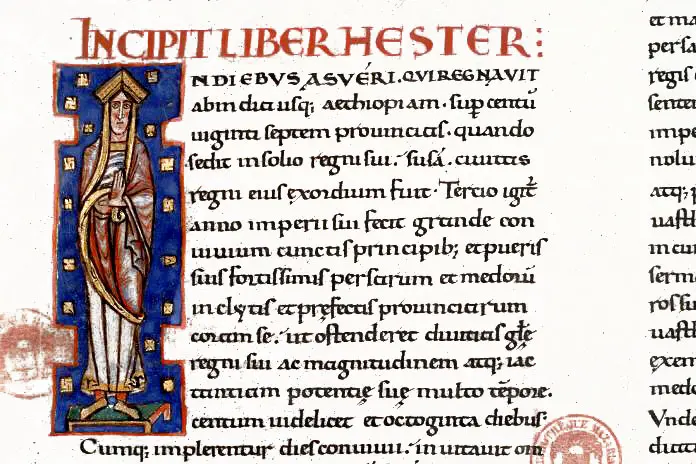 INCIPIT LIBER HESTER:
IN DIEBVS ASVERI. QVI REGNAVIT
ab india usq; aethiopiam. sup centū
uiginti septem prouincias. quando
sedit in solio regni sui. susā. ciuitas
regni eius exordium fuit. Tercio igit̄
anno imperii sui fecit grande con
uiuium cunctis principib; et pueris
suis fortissimis persarum et medorū
inclytis et pręfectis prouinciarum
coram se. ut ostenderet diuitias glę
regni sui ac magnitudinem atq; iac
tantiam potentię suę multo tēpore.
centum uidelicet et octoginta diebus:
Cumq; implerentur dies conuiuii. inuitauit om
et ma
persa
regis
senten
impe
nolu
atq; p
uasth
in cun
serm
ros su
uasth
exem
medo
Vnde
ducat